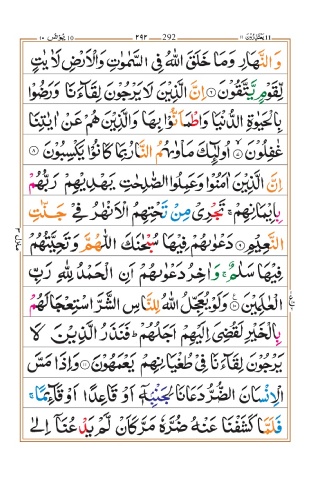 يونس ١٠ ٢٩٢ 292 يعتذرون ١١
وَالنَّهَارِ وَمَا خَلَقَ اللّٰهُ فِى السَّمٰوٰتِ وَالْاَرْضِ لَاٰيٰتٍ
لِّقَوْمٍ يَّتَّقُوْنَ ۝٦ اِنَّ الَّذِيْنَ لَا يَرْجُوْنَ لِقَآءَنَا وَرَضُوْا
بِالْحَيٰوةِ الدُّنْيَا وَاطْمَاَنُّوْا بِهَا وَالَّذِيْنَ هُمْ عَنْ اٰيٰتِنَا
غٰفِلُوْنَ ۝٧ اُولٰٓئِكَ مَاْوٰىهُمُ النَّارُ بِمَا كَانُوْا يَكْسِبُوْنَ ۝٨
اِنَّ الَّذِيْنَ اٰمَنُوْا وَعَمِلُوا الصّٰلِحٰتِ يَهْدِيْهِمْ رَبُّهُمْ
بِاِيْمَانِهِمْ ۚ تَجْرِىْ مِنْ تَحْتِهِمُ الْاَنْهٰرُ فِىْ جَنّٰتِ
النَّعِيْمِ ۝٩ دَعْوٰىهُمْ فِيْهَا سُبْحٰنَكَ اللّٰهُمَّ وَتَحِيَّتُهُمْ
فِيْهَا سَلٰمٌ ۚ وَاٰخِرُ دَعْوٰىهُمْ اَنِ الْحَمْدُ لِلّٰهِ رَبِّ
الْعٰلَمِيْنَ ۝١٠ وَلَوْ يُعَجِّلُ اللّٰهُ لِلنَّاسِ الشَّرَّ اسْتِعْجَالَهُمْ
بِالْخَيْرِ لَقُضِىَ اِلَيْهِمْ اَجَلُهُمْ ؕ فَنَذَرُ الَّذِيْنَ لَا
يَرْجُوْنَ لِقَآءَنَا فِىْ طُغْيَانِهِمْ يَعْمَهُوْنَ ۝١١ وَاِذَا مَسَّ
الْاِنْسَانَ الضُّرُّ دَعَانَا لِجَنْۢبِهٖۤ اَوْ قَاعِدًا اَوْ قَآئِمًا ۚ
فَلَمَّا كَشَفْنَا عَنْهُ ضُرَّهٗ مَرَّ كَاَنْ لَّمْ يَدْعُنَاۤ اِلٰى